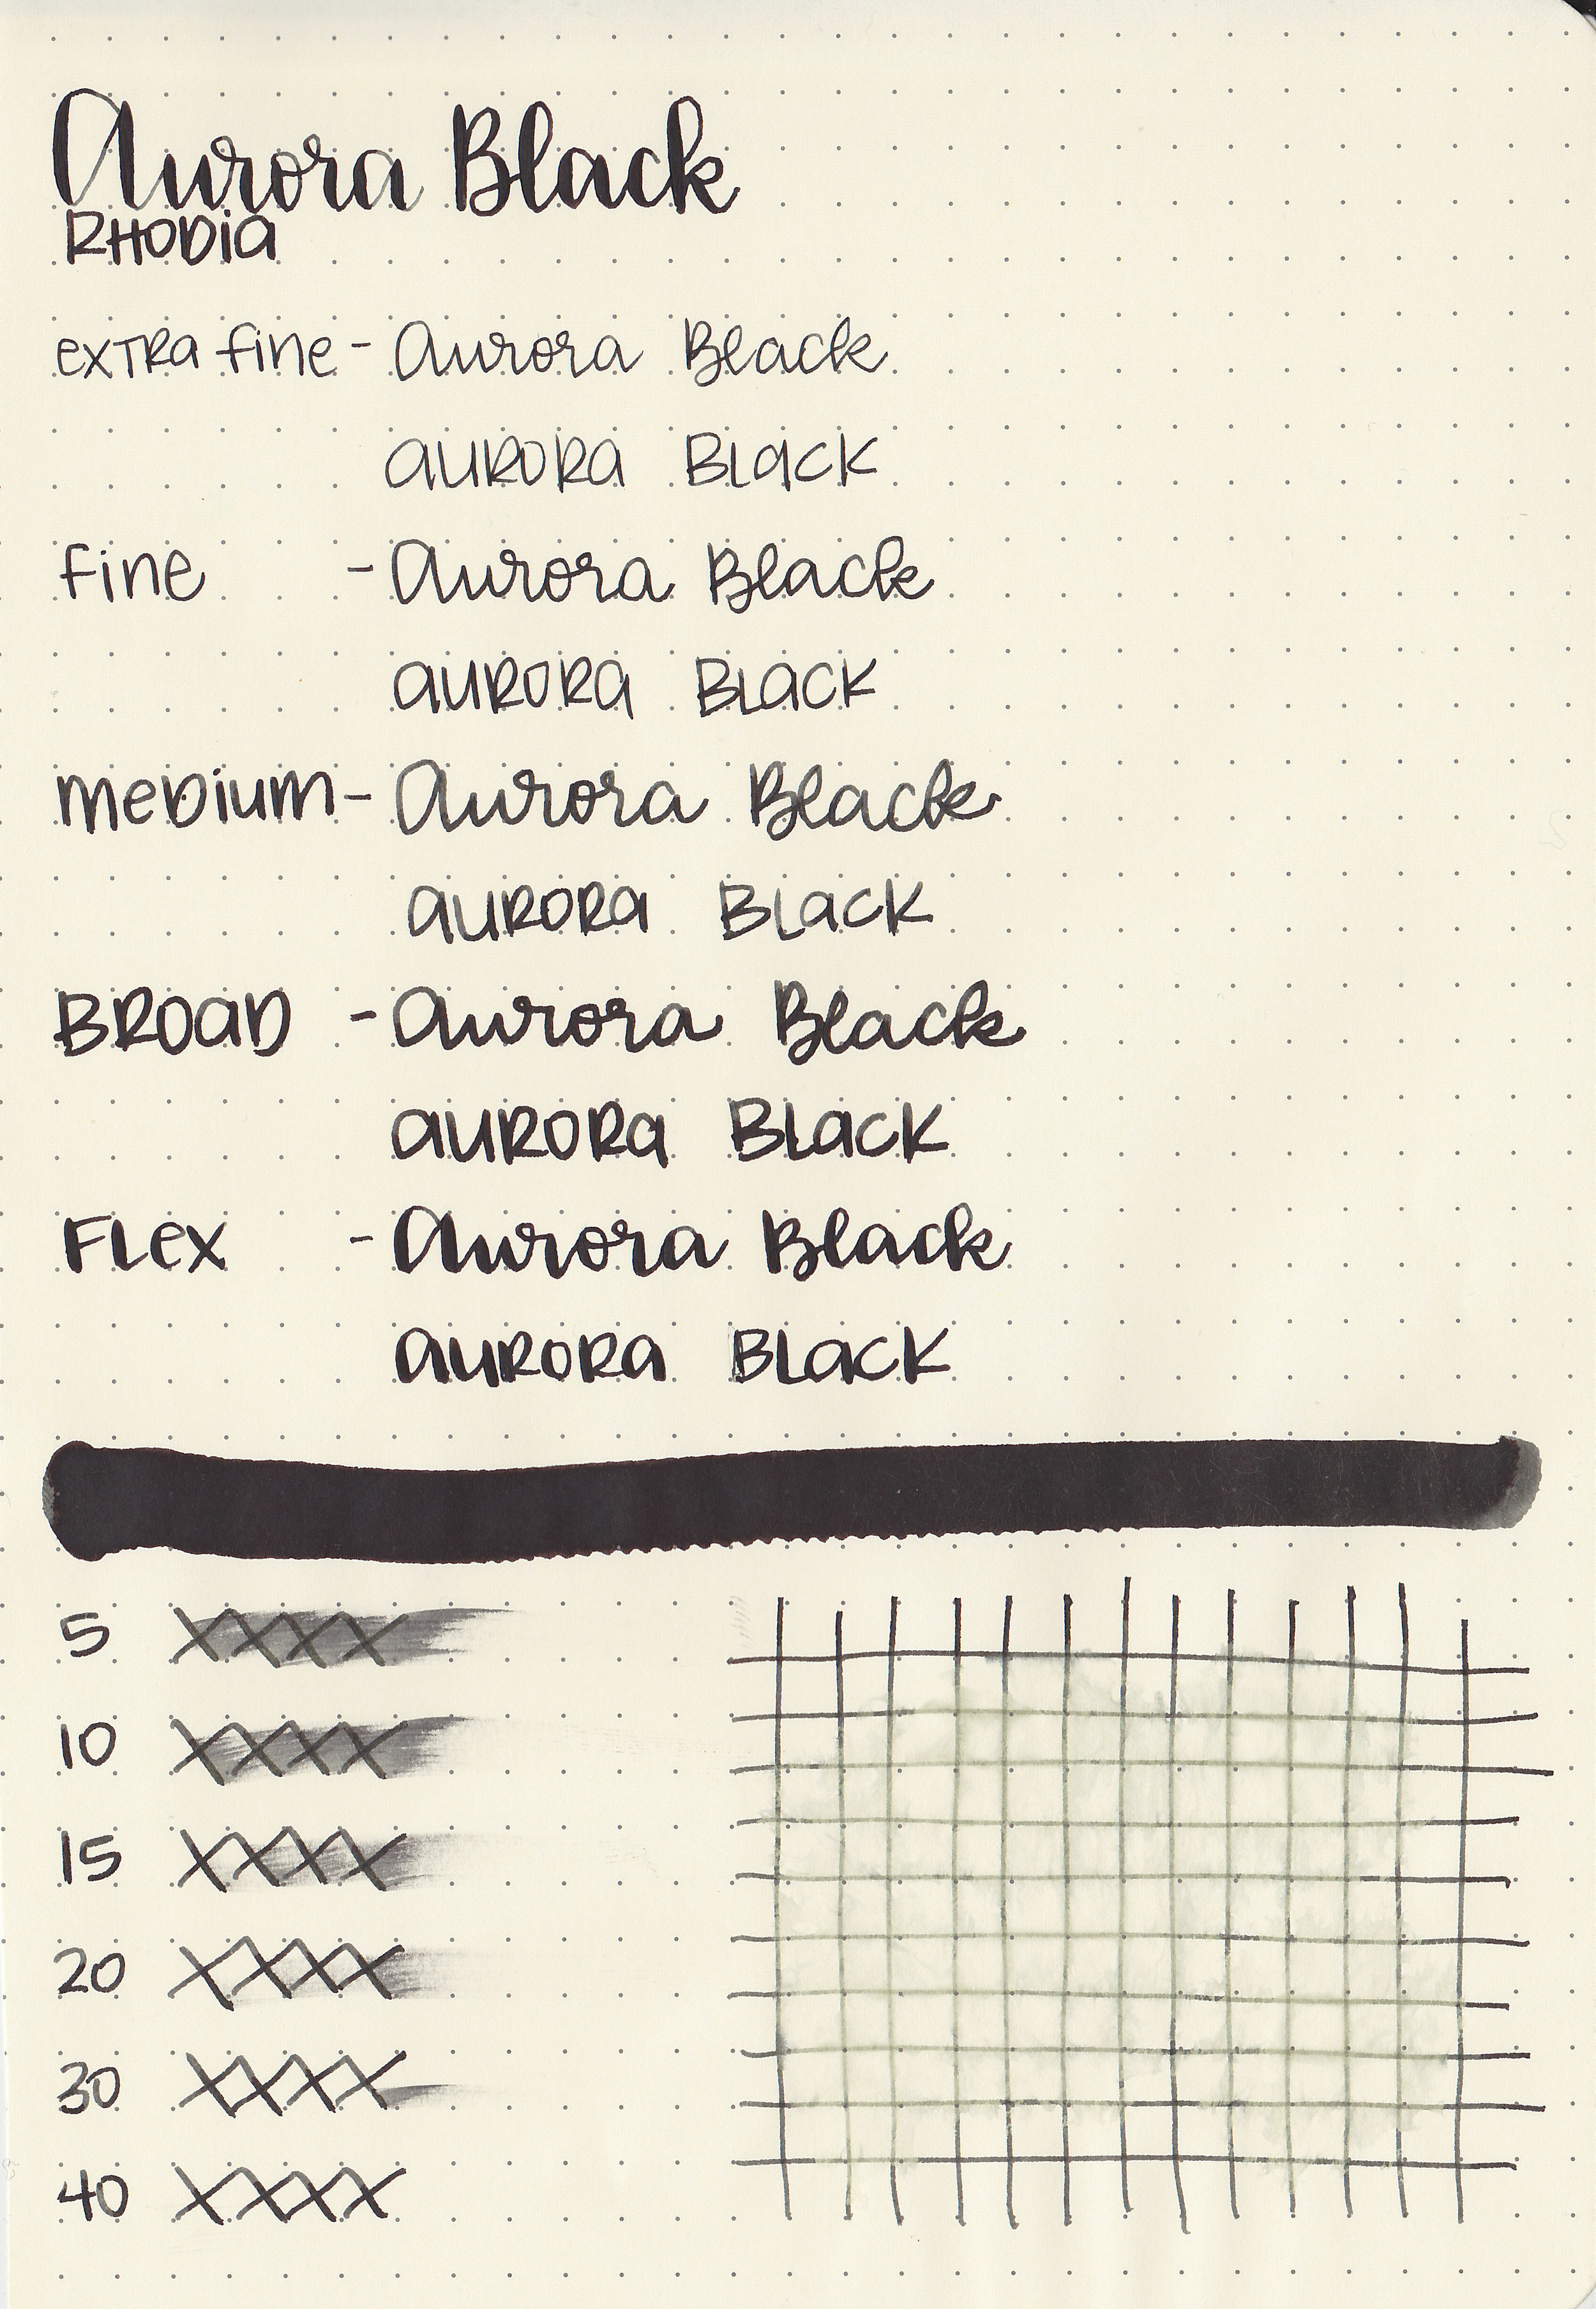 Aurora Black
RHODIa
exTRa fine - Aurora Black
aURORa BLaCK
fine - Aurora Black
aURORa BLaCK
meDium - Aurora Black
aURORa BLaCK
BROaD - Aurora Black
aURORa BLaCK
FLex - Aurora Black
aURORa BLaCK
5 XXXX
10 XXXX
15 XXXX
20 XXXX
30 XXXX
40 XXXX